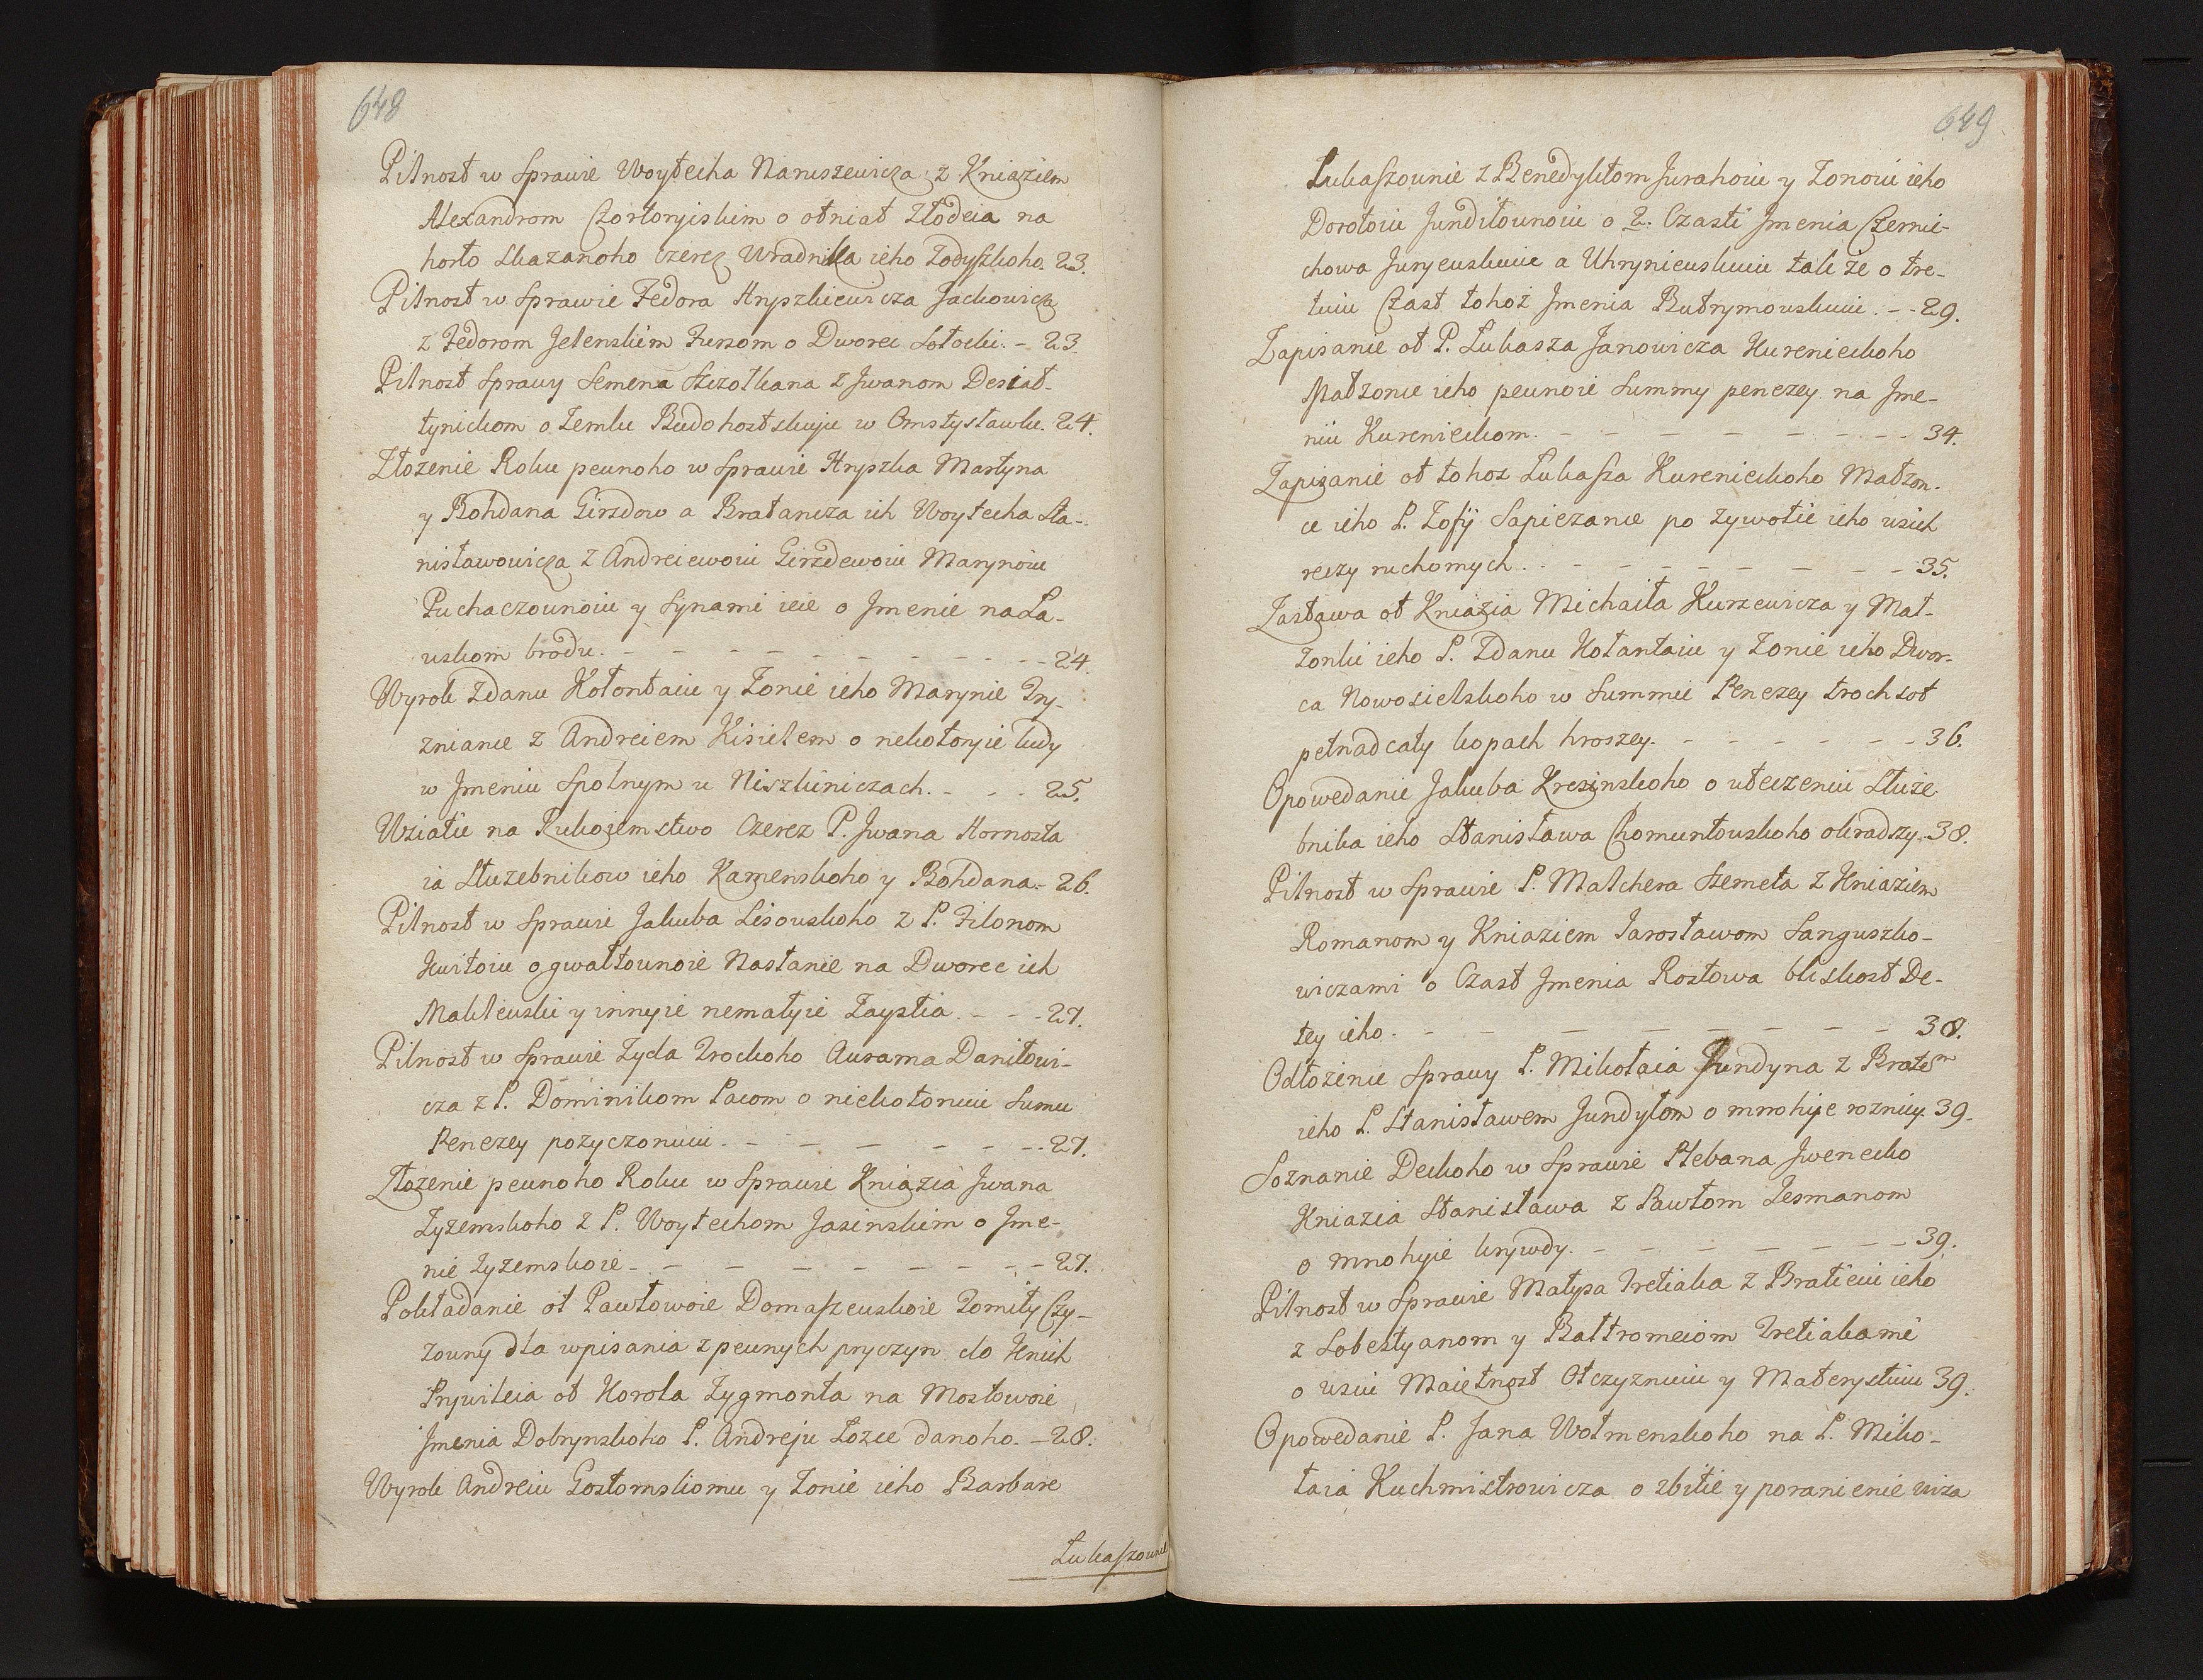 648
Pilnost w Sprawie Woytecha Naruszewicza z Kniaziem
Alexandrom Czortoryiskim o otniat Złodeia na
horło skazanoho czerez Uradnika ieho Zodyszkoho. 23.
Pilnost w Sprawie Fedora Hryszkiewicza Jackowicza
z Fedorom Jelenskim Fursom o Dworec Sołocki. - 23.
Pilnost Sprawy Semena Szizotkana z Jwanom Desiat-
tynickom o Zemlu Budohostskuju w Omstysławlu. 24.
Złozenie Roku peunoho w Sprawie Hryszka Martyna
y Bohdana Girzdow a Bratancza ich Woytecha Sta-
nisławowicza z Andreiewoiu Girzdewoiu Marynoiu
Puchaczounoiu y Synami ieie o Jmenie na Ła-
uskom brodu. - - - - - - - - - 24.
Wyrok Zdanu Kołontaiu y Zonie ieho Marynie Try-
zniance z Andreiem Kisielem o nekotoryie ludy
w Jmeniu Spolnym u Niszkiniczach. - - - 25.
Uziatie na Rukoiemstwo Czerez P. Jwana Hornosta
ia Słuzebnikow ieho Kamenskoho y Bohdana. - 26.
Pilnost w Sprawie Jakuba Lisouskoho z P. Filonom
Kmitoiu o gwałtounoie Nastanie na Dworec ich
Makleuski y innyie nemałyie Zaystia. - - - 27.
Pilnost w Sprawie Zyda Trockoho Aurama Daniłowi-
cza z P. Dominikom Pacom o niekotoruiu Sumu
Penezey pozyczonuiu - - - - - - - 27.
Złozenie peunoho Roku w Sprawie Kniazia Jwana
Zyzemskoho z P. Woytechom Jasinskim o Jme-
nie Zyzemskoie - - - - - - - - 27.
Pokładanie ot Pawłowoie Domaszeuskoie Tomiły Czy-
zouny dla wpisania z peunych pryczyn do Knih
Prywileia ot Korola Zygmonta na Mostowoie
Jmenia Dobrynskoho P. Andreju Łozce danoho. - 28.
Wyrok Andreiu Gostomskomu y Zonie ieho Barbare
Łukaszounie
649
Łukaszounie z Benedyktom Jurahoiu y Zonoiu ieho
Dorotoiu Junditounoiu o 2. Czasti Jmenia Czernie-
chowa Juryeuskuiu a Uhrynieuskuiu tak ze o tre-
tuiu Czast tohoż Jmenia Butrymouskuiu. - - 29.
Zapisanie ot P. Łukasza Janowicza Kurenieckoho
Małzonce ieho peunoie Summy penezey na Jme-
niu Kurenieckom. - - - - - - - - 34.
Zapisanie ot tohoz Łukasza Kurenieckoho Małzon-
ce ieho P. Zofij Sapiezance po zywotie ieho usich
reczy ruchomych. - - - - - - - - 35.
Zastawa ot Kniazia Michaiła Kurzewicza y Mał-
zonki ieho P. Zdanu Kołantaiu y Zonie ieho Dwor-
ca Nowosielskoho w Summie Penezey troch sot
petnadcaty kopach hroszey. - - - - - - 36.
Opowedanie Jakuba Kresinskoho o uteczeniu Służe
bnika ieho Stanisława Chomuntouskoho okradszy. 38.
Pilnost w Sprawie P. Malchera Szemeta z Kniaziem
Romanom y Kniaziem Jarosławom Sanguszko-
wiczami o Czast Jmenia Rostowa bliskost De-
tey ieho. - - - - - - - - 38.
Odłożenie Sprawy P. Mikołaia Jundyna z Bratem
ieho P. Stanisławem Jundyłom o mnohije roznicy. 39.
Soznanie Deckoho w Sprawie Plebana Jwenecko
Kniazia Stanisława z Pawłom Jesmanom
o mnohyie krywdy. - - - - - - - - 39.
Pilnost w Sprawie Matysa Tretiaka z Bratieiu ieho
z Sobestyanom y Bałtromeiom Tretiakami
o usiu Maiętnost Otczyznuiu y Materystuiu 39.
Opowedanie P. Jana Wołmenskoho na P. Miko-
łaia Kuchmistrowicza o zbitie y poranienie wiza